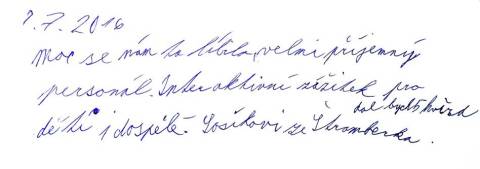 ?.7.2016
Moc se nám to líbilo, velmi příjemný
personál. Interaktivní zážitek pro
děti i dospělé. Sosíkovi ze Štramberka.
dal bych 5 hvězd